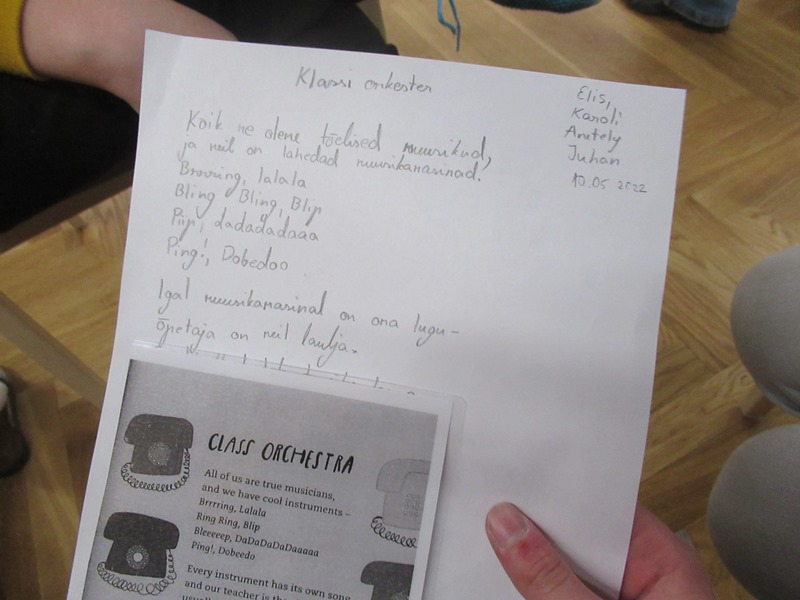 Klassi orkester
Elis,
Karoli
Anetely
Juhan
10.05 2022
Kõik me oleme tõelised muusikud,
ja meil on lahedad muusikamasinad.
Brrrring, lalala
Bling Bling, Blip
Piip, dadadadaaa
Ping!, Dobedoo
Igal muusikamasinal on oma lugu-
õpetaja on meil laulja.
CLASS ORCHESTRA
All of us are true musicians,
and we have cool instruments –
Brrrring, Lalala
Ring Ring, Blip
Bleeeeep, DaDaDaDaDaaaaa
Ping!, Dobeedo
Every instrument has its own song
and our teacher is the